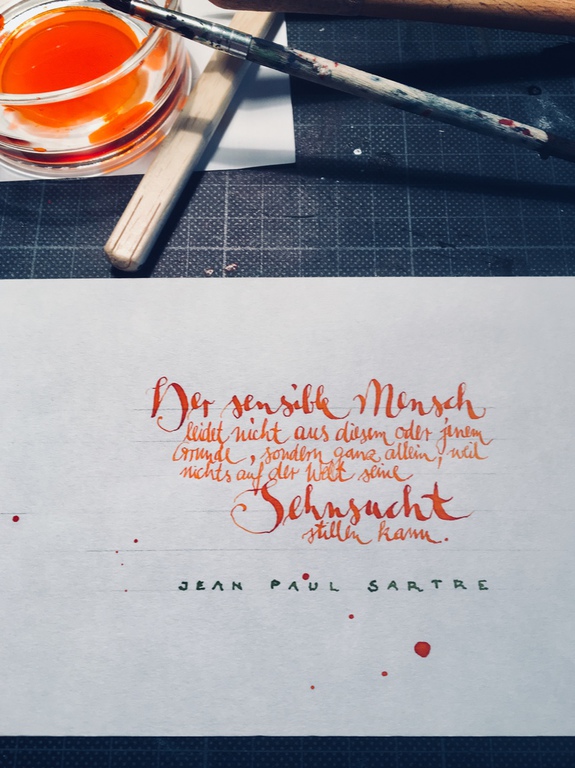 Der sensible Mensch
leidet nicht aus diesem oder jenem
Grunde, sondern ganz allein, weil
nichts auf der Welt seine
Sehnsucht
stillen kann.
JEAN PAUL SARTRE